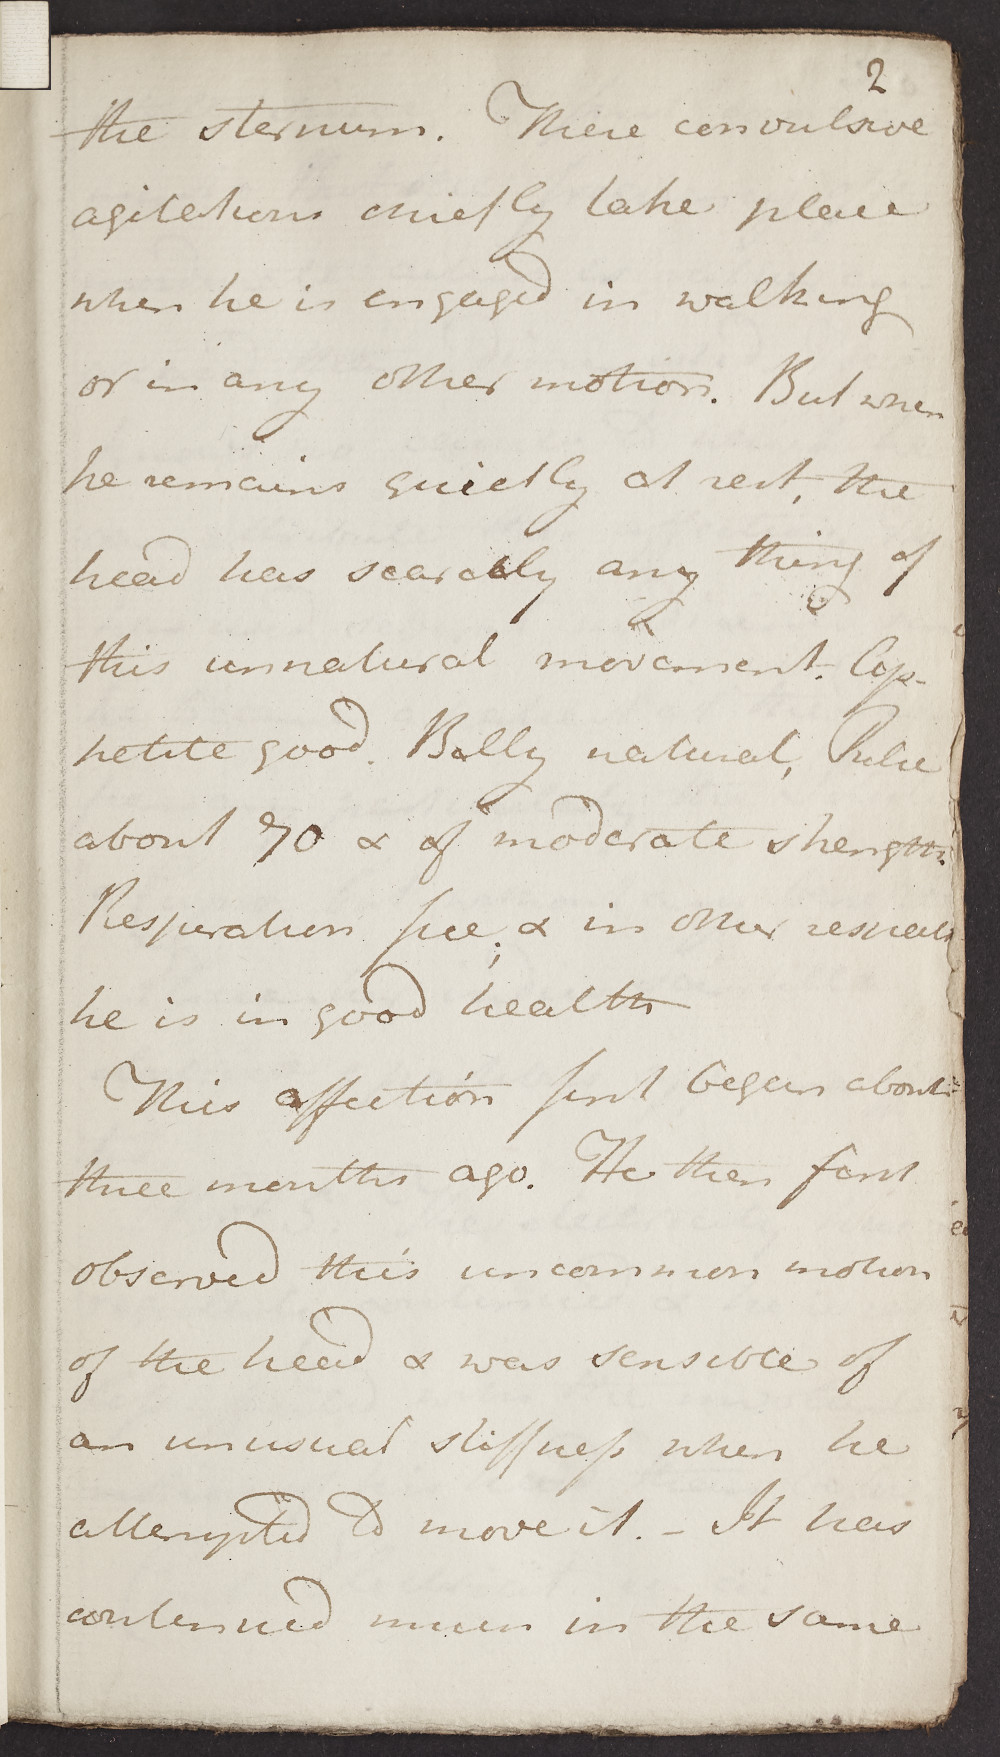 2
the sternum. These convulsive
agitations chiefly take place
when he is engaged in walking
or in any other motion. But when
he remains quietly at rest, the
head has scarcely any thing of
this unnatural movement. Ap-
petite good. Belly natural, Pulse
about 70 & of moderate strength.
Respiration free; & in other respects
he is in good health
This affection first began about
three months ago. He then first
observed this uncommon motion
of the head & was sensible of
an unusual stiffness when he
attempted to move it. - It has
continued much in the same